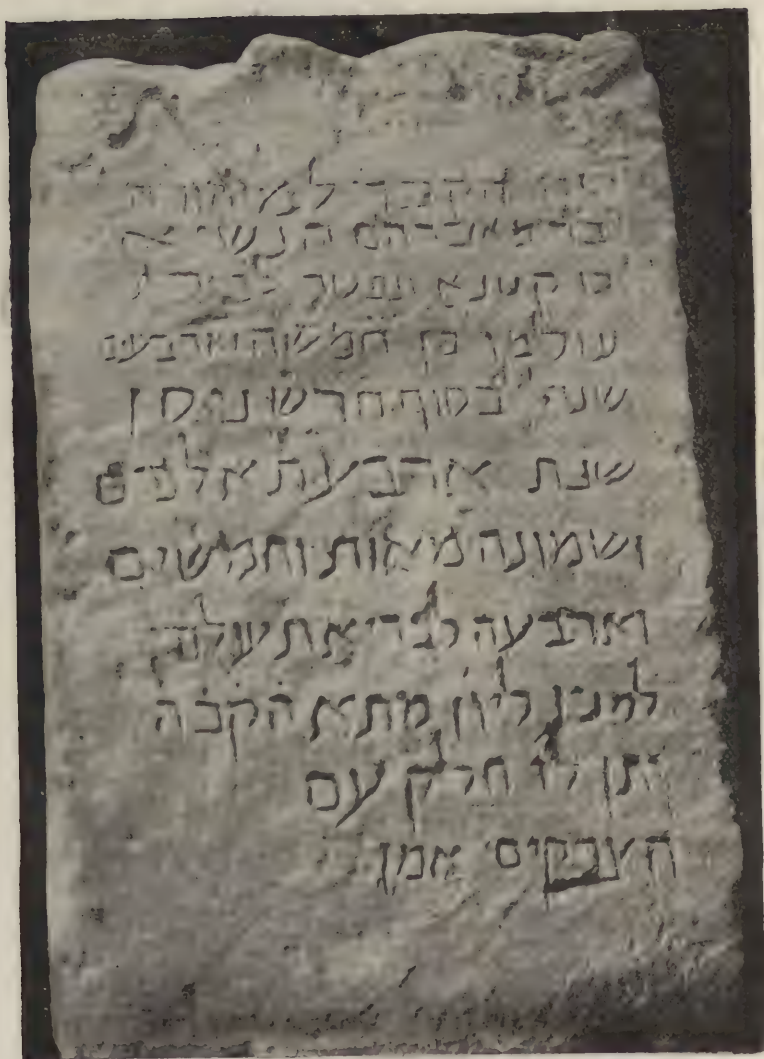 זה הקבר למ יהודה
בר מ אברהם הנשיא
בן קטנא ונפטר לבית
עולמו בן חמשה וארבעים
שנה בסוף חדש ניסן
שנת ארבעת אלפים
ושמונה מאות וחמשים
וארבעה לבריאת עולם
למנין ליון מתא הקבה
יתן לו חלק עם
הצדקים אמן